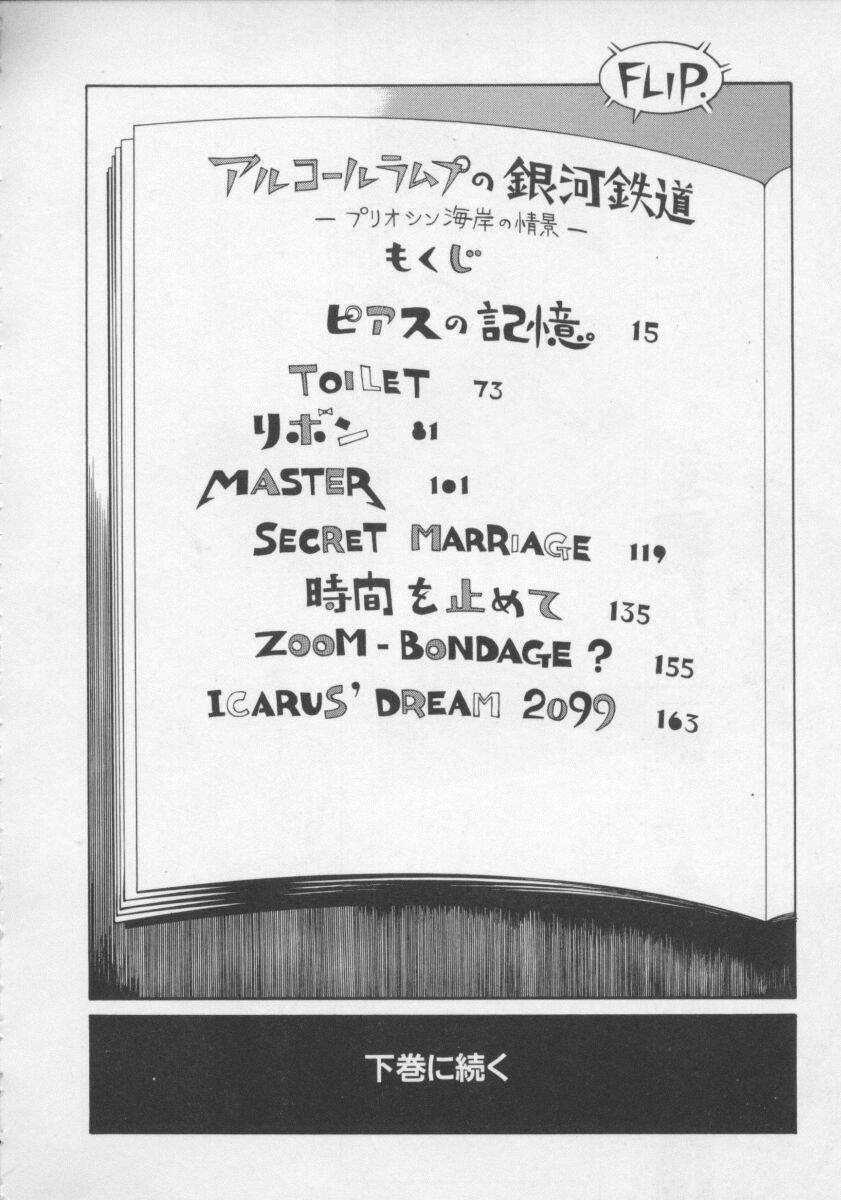 FLIP.
アルコールラムプの銀河鉄道
― プリオシン海岸の情景 ―
もくじ
ピアスの記憶。 15
TOILET 73
リボン 81
MASTER 101
SECRET MARRIAGE 119
時間を止めて 135
ZOOM - BONDAGE ? 155
ICARUS' DREAM 2099 163
下巻に続く